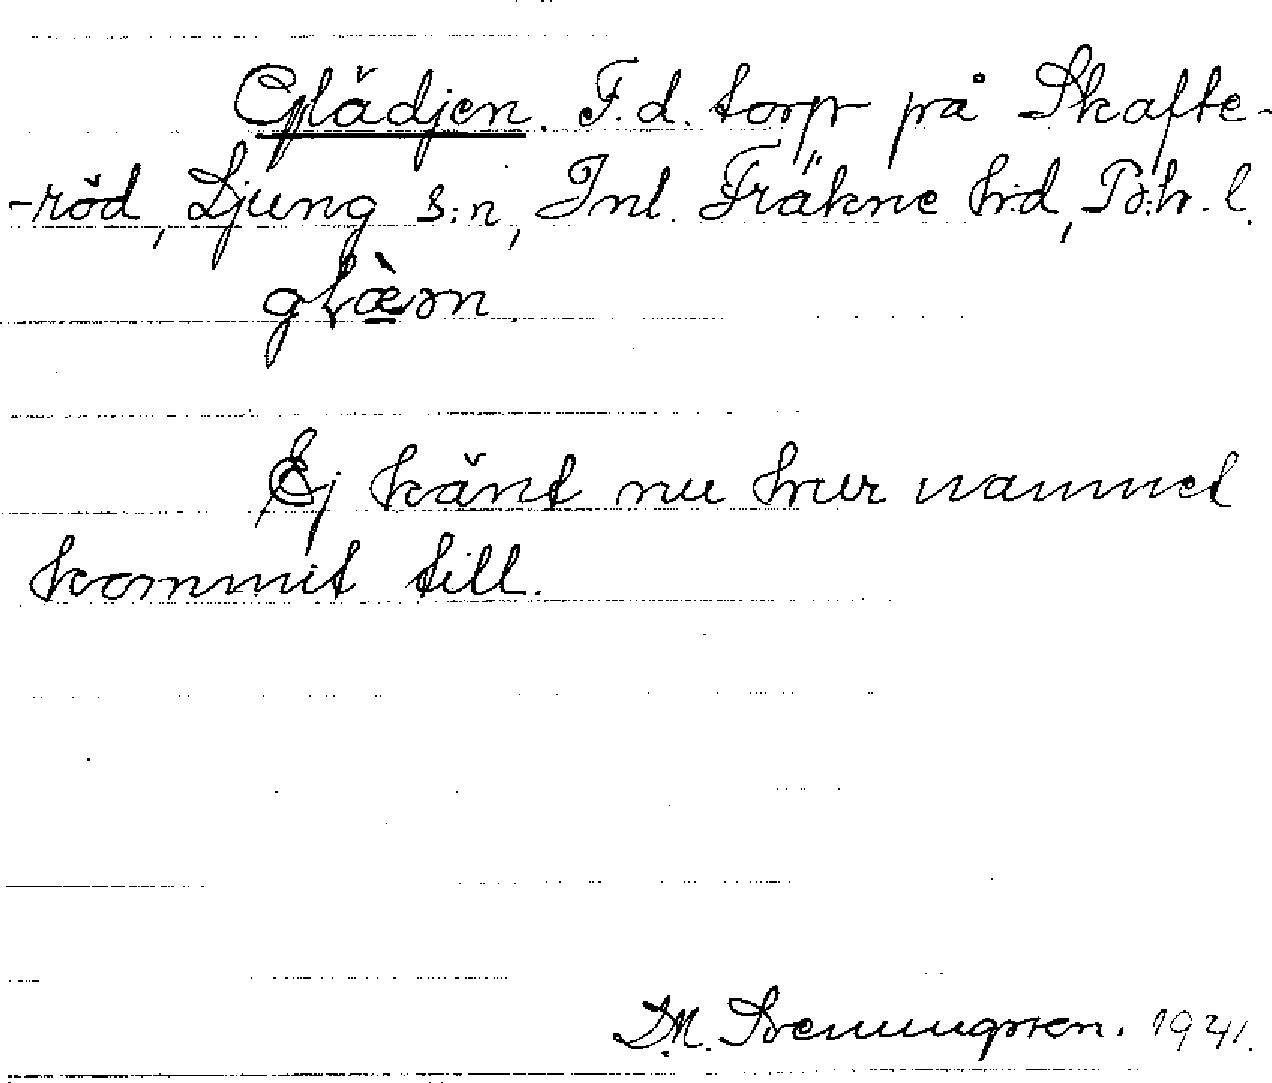 Glädjen. F.d. torp på Skafte-
-röd, Ljung s:n, Inl. Fräkne h:d, Boh. l.
glæ̀ən.
Ej känt nu hur namnet
kommit till.
D.M. Svenningsson. 1941.